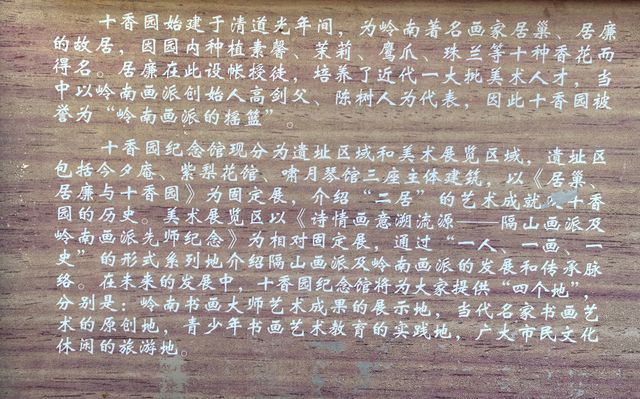 十香园始建于清道光年间，为岭南著名画家居巢、居廉
的故居，因园内种植素馨、茉莉、鹰爪、珠兰等十种香花而
得名。居廉在此设帐授徒，培养了近代一大批美术人才，当
中以岭南画派创始人高剑父、陈树人为代表，因此十香园被
誉为“岭南画派的摇篮”。
十香园纪念馆现分为遗址区域和美术展览区域，遗址区
包括今夕庵、紫梨花馆、啸月琴馆三座主体建筑，以《居巢、
居廉与十香园》为固定展，介绍“二居”的艺术成就、十香
园的历史。美术展览区以《诗情画意溯流源——隔山画派及
岭南画派先师纪念》为相对固定展，通过“一人、一画、一
史”的形式系列地介绍隔山画派及岭南画派的发展和传承脉
络。在未来的发展中，十香园纪念馆将为大家提供“四个地”，
分别是：岭南书画大师艺术成果的展示地，当代名家书画艺
术的原创地，青少年书画艺术教育的实践地，广大市民文化
休闲的旅游地。